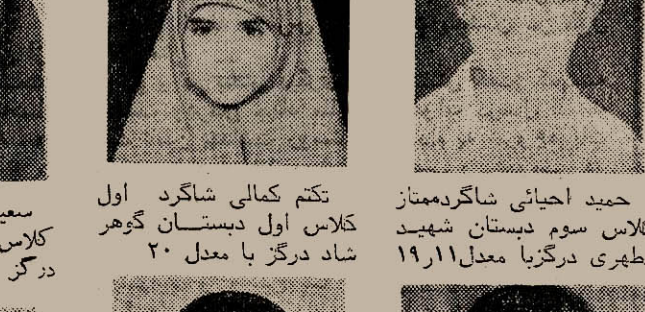 حمید احیائی شاگردممتاز
کلاس سوم دبستان شهید
مطهری درگزبا معدل۱۹ر۱۱
تکتم کمالی شاگرد اول
کلاس اول دبستــان گوهر
شاد درگز با معدل ۲۰
کلاس
درگز